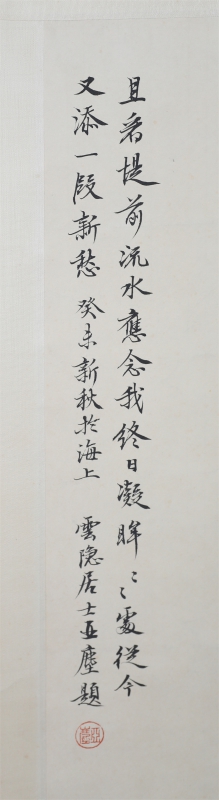 且看堤前流水應念我終日凝眸〻〻處從今
又添一段新愁 癸未新秋於海上 雲隐居士亚塵題